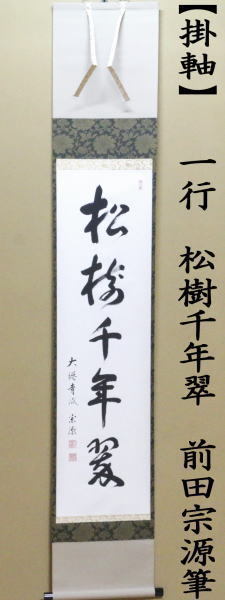 【掛軸】 一行 松樹千年翠 前田宗源筆
松樹千年翠
大徳寺派 宗源